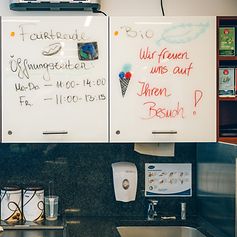 Fairtrade
Öffnungszeiten:
Mo-Do - 11:00-14:00
Fr. - 11:00-13:15
Bio
Wir freuen
uns auf
Ihren
Besuch!